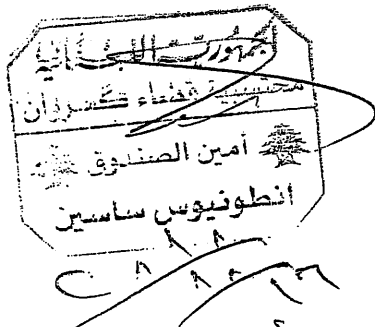 الجمهورية اللبنانية
محتسبية قضاء كسروان
أمين الصندوق
انطونيوس ساسين